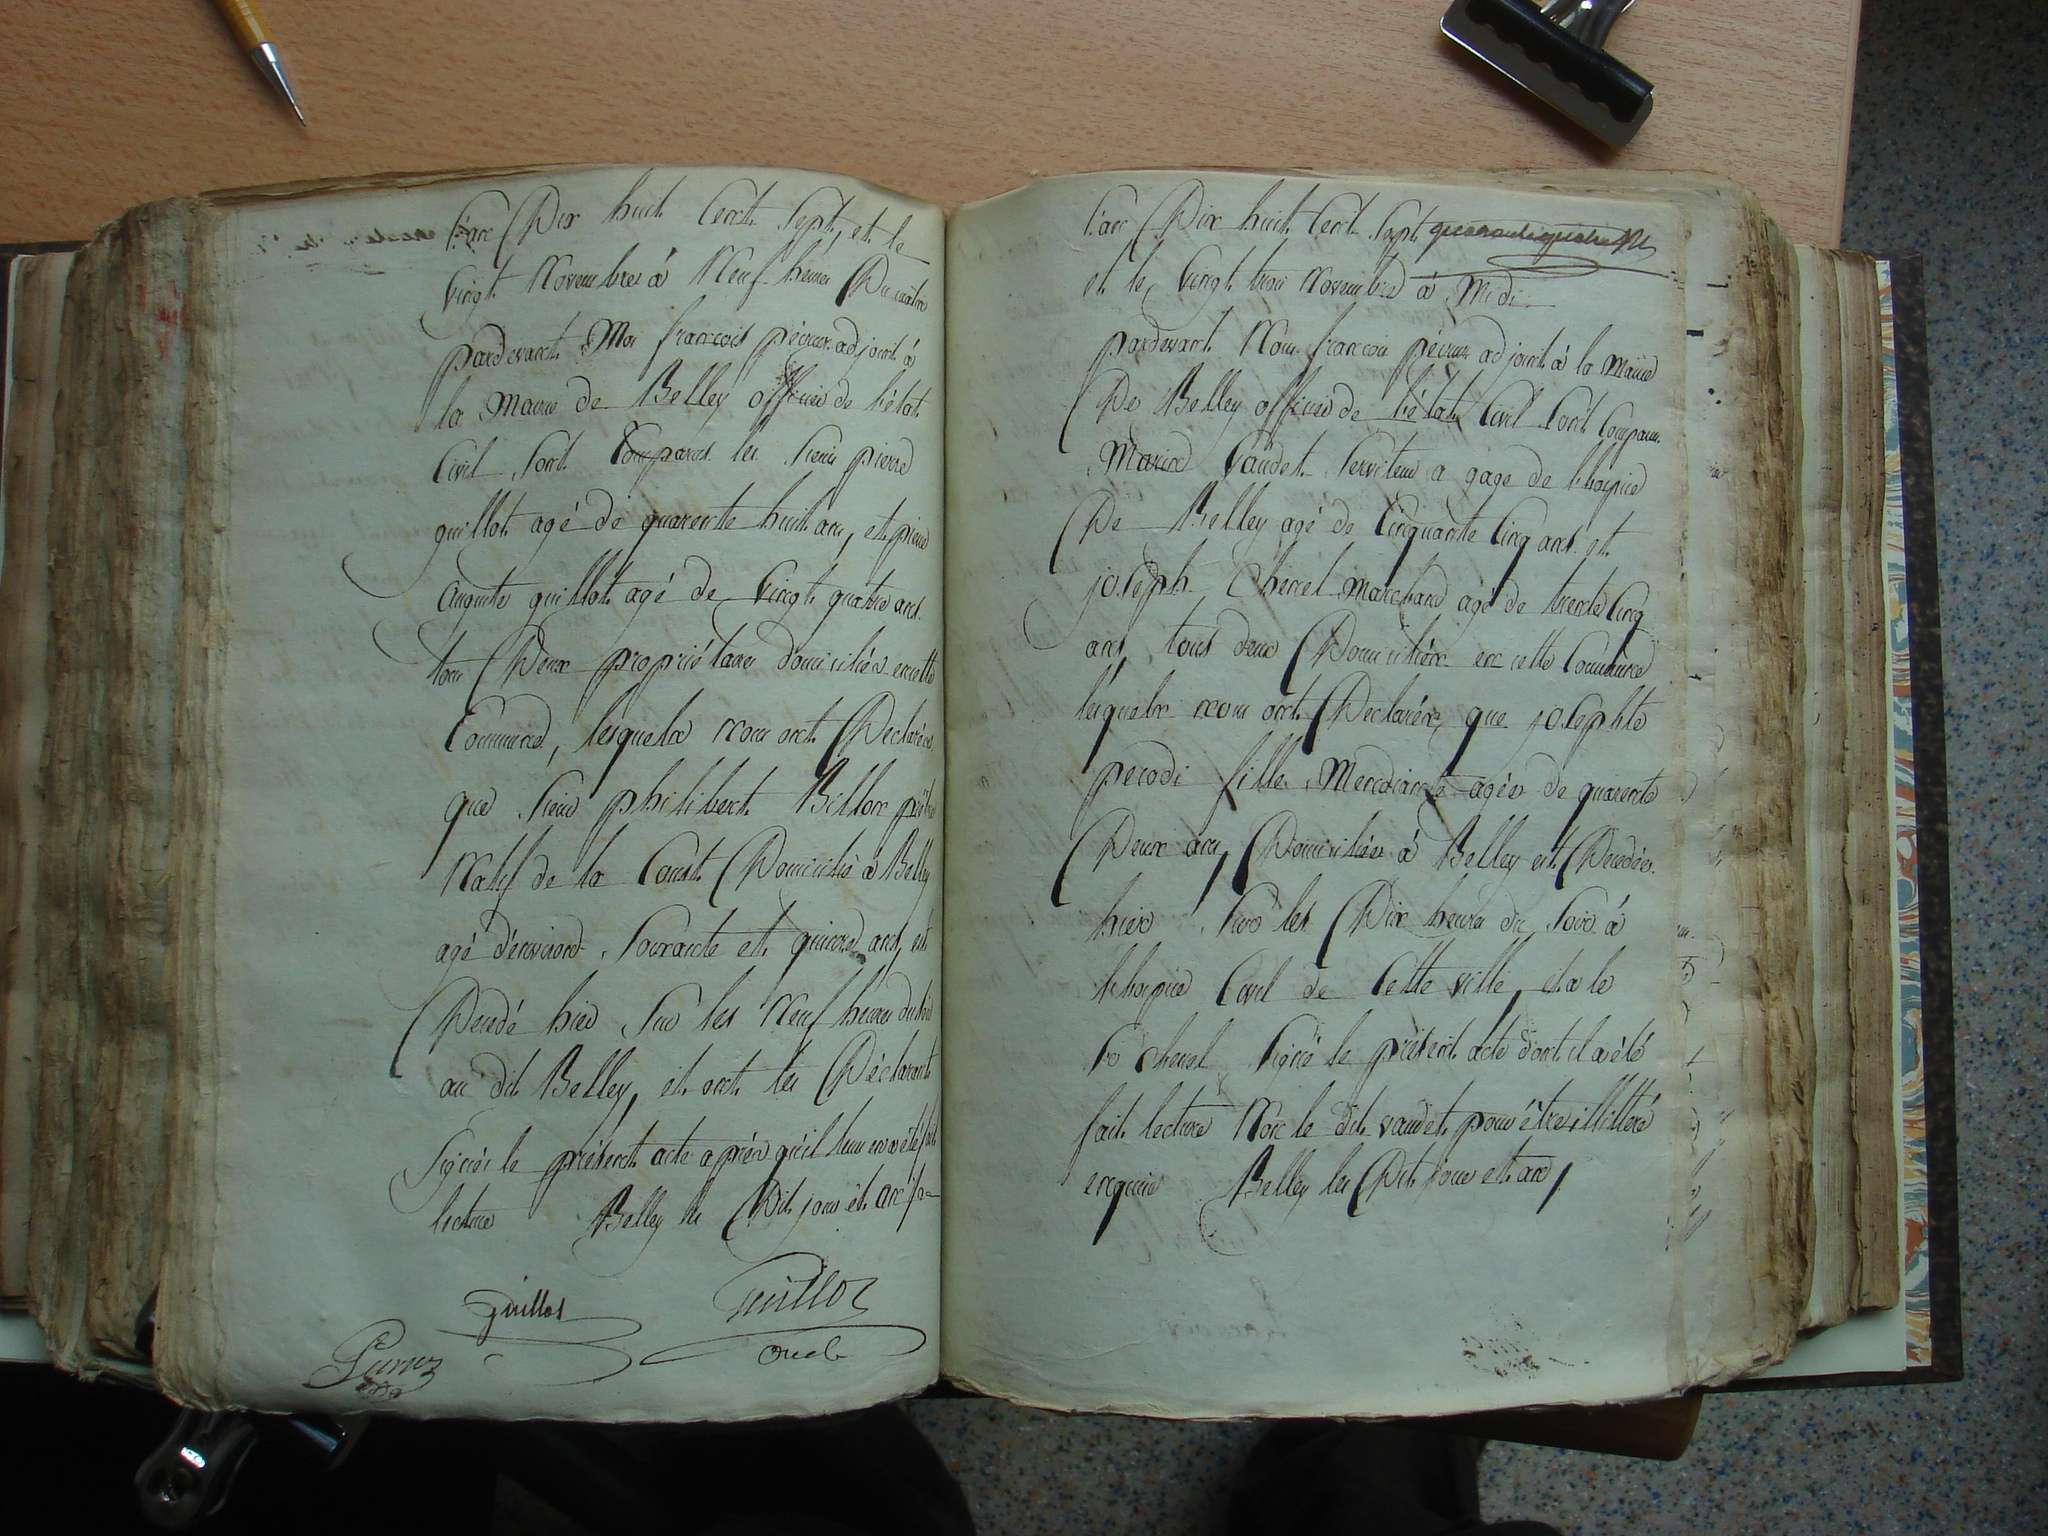 L'an Dix huit Cent Sept, et le
Vingt Novembre à Neuf heures Du matin
pardevant Moi françois péerus adjoint à
la Mairie de Belley officier de l'état
Civil Sont Comparus les Sieurs pierre
guillot agé de quarente huit ans, et pierre
Auguste guillot agé de Vingt quatre ans
tous Deux propriétaires domiciliés en cette
Commune, lesquels nous ont Déclarés
que Sieur philibert Billon prêtre
Natif de la Domicilié à Belley
agé d'environ Soixante et quinze ans, est
Décédé hier Sur les Neuf heures du Soir
au dit Belley, et ont les Déclarants
Signés le présent acte après qu'il leur en a été fait
lecture Belley les Dit jour et an
Guillot Guillot
oncle
L'an Dix huit Cent Sept
et le Vingt trois Novembre à Midi
pardevant Nous françois adjoint à la Mairie
De Belley officier de l'état Civil Sont Comparus
Vaudet Serviteur a gage de l'hospice
De Belley agé de Cinquante Cinq ans et
joseph Chenel Marchand agé de trente Cinq
ans tous deux Domiciliés en cette Commune
lesquels nous ont Déclarés que josephte
perodi fille Mendiante agée de quarente
Deux ans, Domiciliée à Belley est Décédée
hier Sur les Dix heures du Soir à
l'hospice Civil de Cette ville, et a le
Sr Chenel Signé le présent acte dont il a été
fait lecture Non le dit vaudet pour être illittéré
enquis Belley les Dit jour et an,